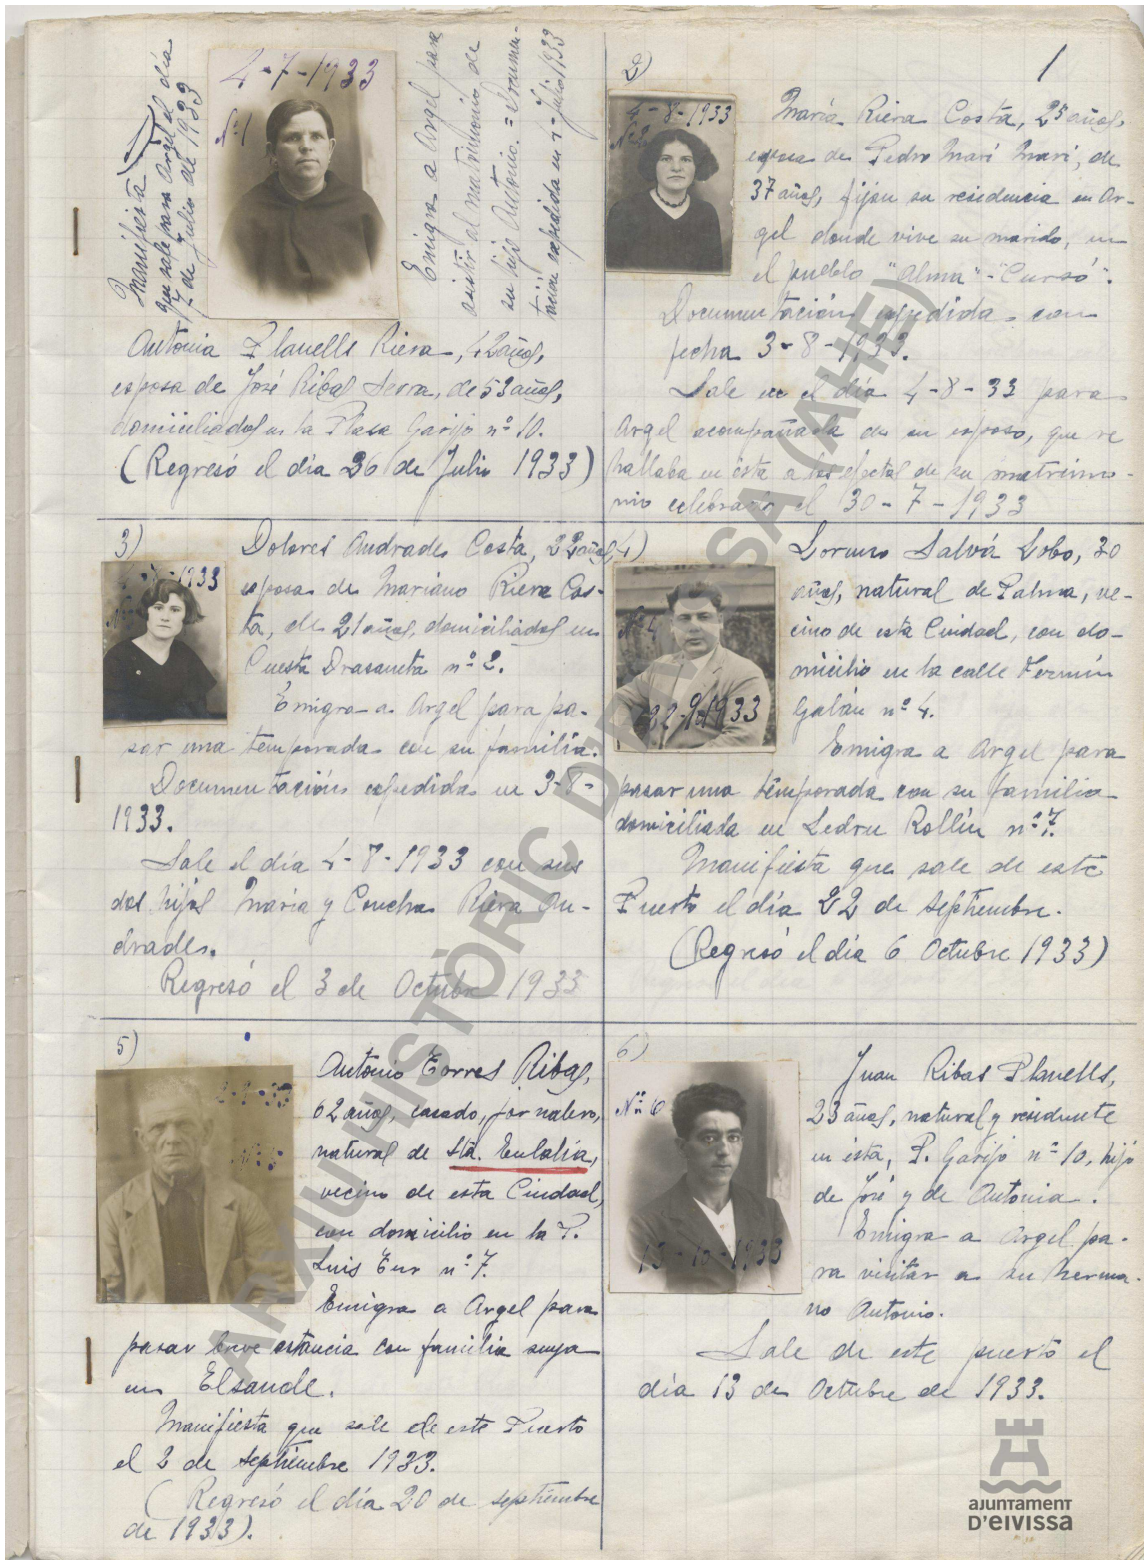 1
4-7-1933
Nº 1
Manifiesta
que sale para Argel el día
7 de Julio de 1933
Emigra a Argel para
asistir al matrimonio de
su hijo Antonio. = Documen-
tación expedida en 1-Julio 1933
Antonia Planells Riera, 42 años,
esposa de José Ribas Serra, de 53 años,
domiciliados en la Plasa Garijo nº 10.
(Regresó el día 26 de Julio 1933)
2)
4-8-1933
Nº 2
María Riera Costa, 25 años,
esposa de Pedro Marí Marí, de
37 años, fijan su residencia en Ar-
gel donde vive su marido, en
el pueblo "Alma"-"Cursó".
Documentación expedida con
fecha 3-8-1933.
Sale en el día 4-8-33 para
Argel acompañada de su esposo, que se
hallaba en ésta a los efectos de su matrimo-
nio celebrado el 30-7-1933
3)
1933
Dolores Andrades Costa, 22 años,
esposa de Mariano Riera Cos-
ta, de 21 años, domiciliados en
Cuesta Drasaneta nº 2.
Emigra a Argel para pa-
sar una temporada con su familia.
Documentación expedida en 3-8-
1933.
Sale el día 4-8-1933 con sus
dos hijos María y Concha Riera An-
drades.
Regresó el 3 de Octubre 1933
4)
Nº 4
22-9-1933
Lorenzo Salvá Lobo, 30
años, natural de Palma, ve-
cino de esta Ciudad, con do-
micilio en la calle Fermín
Galán nº 4.
Emigra a Argel para
pasar una temporada con su familia
domiciliada en Ledru Rollin nº 7.
Manifiesta que sale de este
Puerto el día 22 de Septiembre.
(Regresó el día 6 Octubre 1933)
5)
Nº 5
Antonio Torres Ribas,
62 años, casado, jornalero,
natural de Sta. Eulalia,
vecino de esta Ciudad,
con domicilio en la P.
Luis Tur nº 7.
Emigra a Argel para
pasar breve estancia con familia suya
en Elsande.
Manifiesta que sale de este Puerto
el 2 de Septiembre 1933.
(Regresó el día 20 de septiembre
de 1933).
6)
Nº 6
13-10-1933
Juan Ribas Planells,
23 años, natural y residente
en ésta, P. Garijo nº 10, hijo
de José y de Antonia.
Emigra a Argel pa-
ra visitar a su herma-
no Antonio.
Sale de este puerto el
día 13 de Octubre de 1933.
ARXIU HISTÒRIC D'EIVISSA (AHE)
AJUNTAMENT
D'EIVISSA